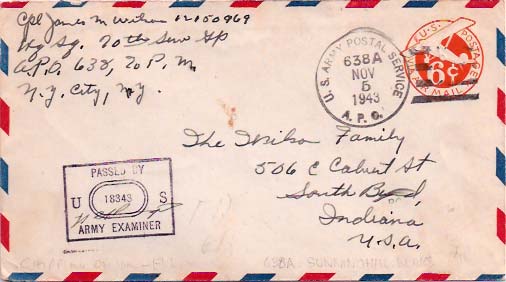 Cpl James M Wilson 12150969
Hq Sq. 70th Serv Gp
A.P.O. 638, % P.M.
N.Y. City, N.Y.
U.S. ARMY POSTAL SERVICE
638A
NOV
5
1943
A.P.O.
U.S. POSTAGE
6c
AIR MAIL
The Wilson Family
506 E Calvert St
South Bend,
Indiana
U.S.A.
PASSED BY
U 18343 S
ARMY EXAMINER
638A